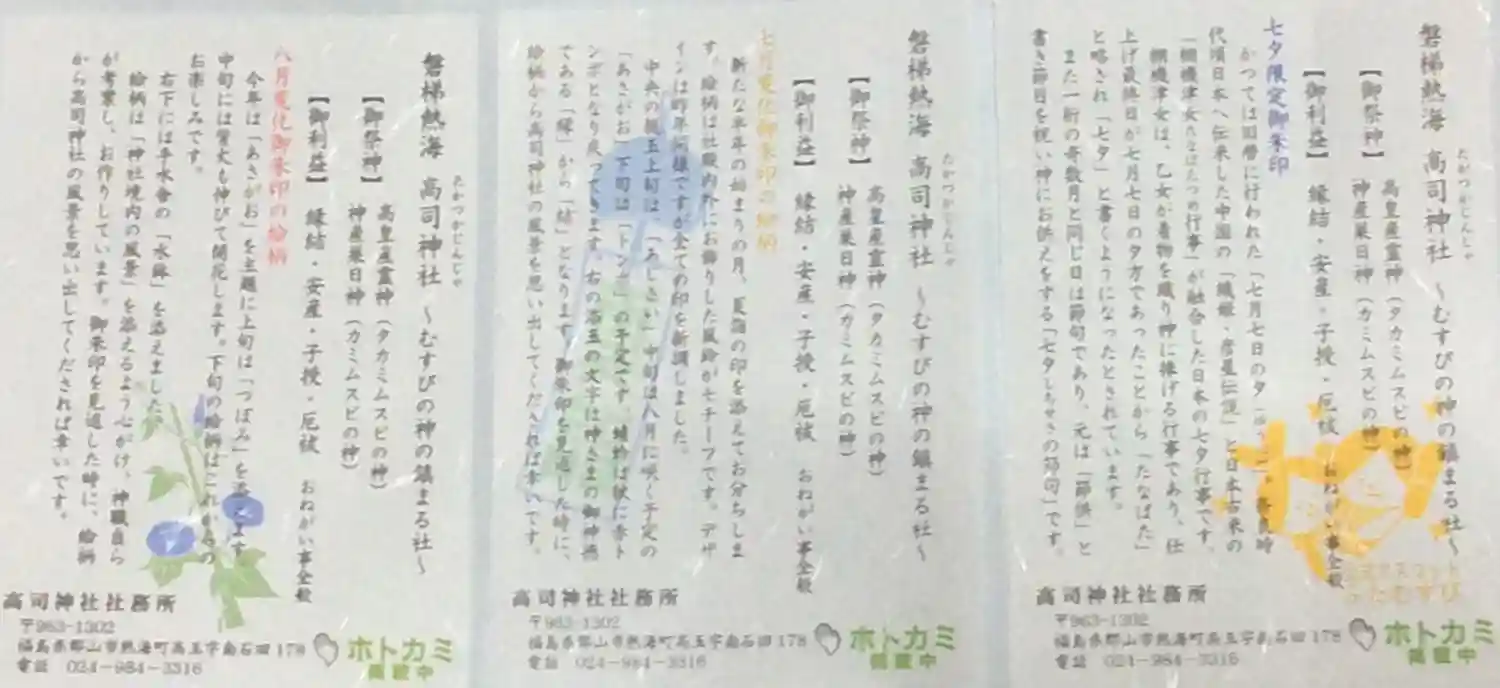 磐梯熱海 高司神社 〜むすびの神の鎮まる社〜
たかつかじんじゃ
【御祭神】 高皇産霊神(タカミムスビの神)
神産巣日神(カミムスビの神)
【御利益】 縁結・安産・子授・厄祓 おねがい事全般
七夕限定御朱印
かつては旧暦に行われた「七月七日の夕
代頃日本へ伝来した中国の「織姫・彦星伝説」と日本古来の
「棚機津女たなばたつめ行事」が融合した日本の七夕行事です。
棚機津女は、乙女が着物を織り神に捧げる行事であり、仕
上げ最終日が七月七日の夕方であったことから「たなばた」
と略され「七夕」と書くようになったとされています。
また一桁の奇数月と同じ日は節句であり、元は「節供」と
書き節目を祝い神にお供えをする「七夕しちせきの節句」です。
むすび
高司神社社務所
〒963-1302
福島県郡山市熱海町高玉字南石田178
電話 024-984-3316
ホトカミ
掲載中
磐梯熱海 高司神社 〜むすびの神の鎮まる社〜
たかつかじんじゃ
【御祭神】 高皇産霊神(タカミムスビの神)
神産巣日神(カミムスビの神)
【御利益】 縁結・安産・子授・厄祓 おねがい事全般
七月変化御朱印の絵柄
新たな半年の始まりの月、夏詣の印を添えてお分ちしま
す。絵柄は社殿内外にお飾りした風鈴がモチーフです。デザ
インは昨年同様ですが全ての印を新調しました。
中央の親玉上旬は、「あじさい」中旬は八月に咲く予定の
「あさがお」下旬は「トンボ」の予定です。蜻蛉は秋に赤ト
ンボとなり戻ってきます。右の添玉の文字は神さまの御神徳
である「縁」から「結」となります。御朱印を見返した時に、
絵柄から高司神社の風景を思い出してくだされば幸いです。
高司神社社務所
〒963-1302
福島県郡山市熱海町高玉字南石田178
電話 024-984-3316
ホトカミ
掲載中
磐梯熱海 高司神社 〜むすびの神の鎮まる社〜
たかつかじんじゃ
【御祭神】 高皇産霊神(タカミムスビの神)
神産巣日神(カミムスビの神)
【御利益】 縁結・安産・子授・厄祓 おねがい事全般
八月変化御朱印の絵柄
今年は「あさがお」を主題に上旬は「つぼみ」を添えます。
中旬には蔓太も伸びて開花します。下旬の絵柄はこれからの
お楽しみです。
右下には手水舎の「水鉢」を添えました。
絵柄は「神社境内の風景」を添えるよう心がけ、神職自ら
が考案し、お作りしています。御朱印を見返した時に、絵柄
から高司神社の風景を思い出してくだされば幸いです。
高司神社社務所
〒963-1302
福島県郡山市熱海町高玉字南石田178
電話 024-984-3316
ホトカミ
掲載中